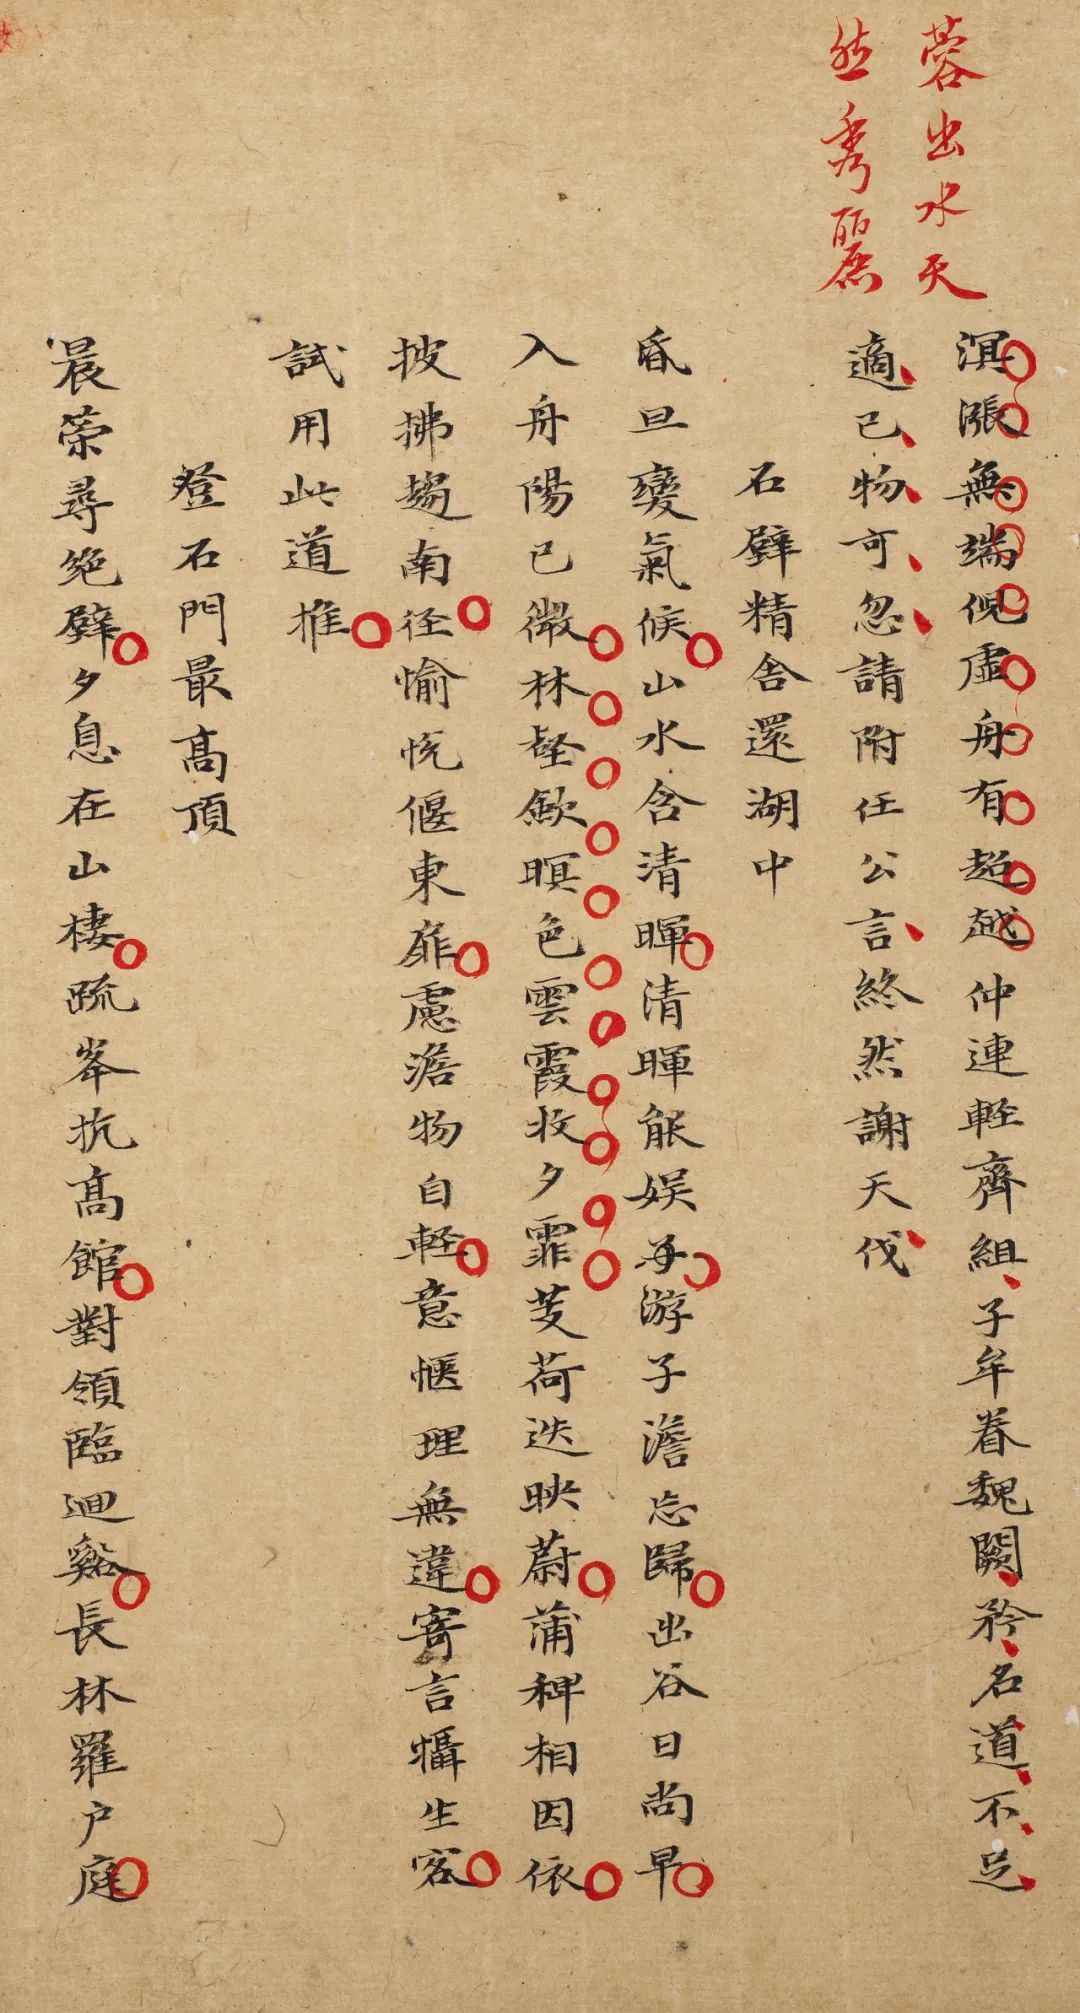 蓉出水天
然秀麗
溟漲無端倪虛舟有超越仲連輕齊組子牟眷魏闕矜名道不足
適己物可忽請附任公言終然謝天伐
石壁精舍還湖中
昏旦變氣候山水含清暉清暉能娛子游子澹忘歸出谷日尚早
入舟陽已微林壑歛暝色雲霞收夕霏芰荷迭映蔚蒲稗相因依
披拂趨南徑愉悅偃東扉慮澹物自輕意愜理無違寄言攝生客
試用此道推
登石門最高頂
晨策尋絕壁夕息在山棲疏峯抗高館對嶺臨迴谿長林羅戶庭